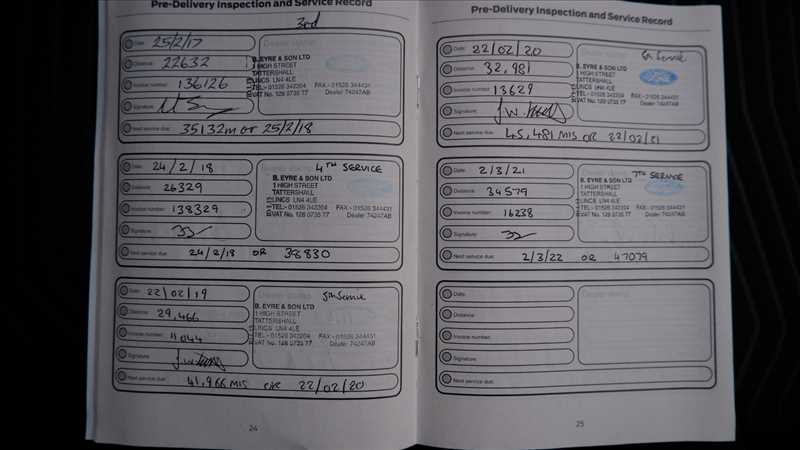 Pre-Delivery Inspection and Service Record
3rd
Date: 25/2/17
Distance: 22632
Invoice number: 136126
Signature:
Next service due: 35132m or 25/2/18
B. EYRE & SON LTD
1 HIGH STREET
TATTERSHALL
LINCS LN4 4LE
TEL:- 01526 342204 FAX - 01526 344431
VAT No. 128 0735 77 Dealer 74247AB
Date: 24/2/18
Distance: 26329
Invoice number: 138329
Signature:
Next service due: 24/2/18 OR 38830
4TH SERVICE
B. EYRE & SON LTD
1 HIGH STREET
TATTERSHALL
LINCS LN4 4LE
TEL:- 01526 342204 FAX - 01526 344431
VAT No. 128 0735 77 Dealer 74247AB
Date: 22/02/19
Distance: 29,466
Invoice number: 11044
Signature:
Next service due: 41,966 MIS OR 22/02/20
5th Service
B. EYRE & SON LTD
1 HIGH STREET
TATTERSHALL
LINCS LN4 4LE
TEL:- 01526 342204 FAX - 01526 344431
VAT No. 128 0735 77 Dealer 74247AB
24
Pre-Delivery Inspection and Service Record
Date: 22/02/20
Distance: 32,981
Invoice number: 13629
Signature:
Next service due: 45,481 MIS OR 22/02/21
6th Service
B. EYRE & SON LTD
1 HIGH STREET
TATTERSHALL
LINCS LN4 4LE
TEL:- 01526 342204 FAX - 01526 344431
VAT No. 128 0735 77 Dealer 74247AB
Ford
Date: 2/3/21
Distance: 34579
Invoice number: 16238
Signature:
Next service due: 2/3/22 OR 47079
7TH SERVICE
B. EYRE & SON LTD
1 HIGH STREET
TATTERSHALL
LINCS LN4 4LE
TEL:- 01526 342204 FAX - 01526 344431
VAT No. 128 0735 77 Dealer 74247AB
Date:
Distance:
Invoice number:
Signature:
Next service due:
25